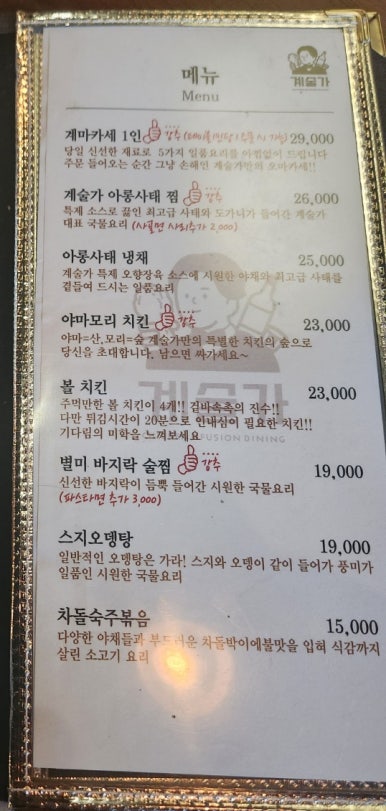 계술가
메뉴
Menu
계마카세 1인 강추 29,000
당일 신선한 재료로 5가지 일품요리를 아낌없이 드립니다
주문 들어오는 순간 그냥 손해인 계술가만의 오마카세!!
계술가 아롱사태 찜 강추 26,000
특제 소스로 끓인 최고급 사태와 도가니가 들어간 계술가
대표 국물요리 (사골면 사리추가 2,000)
아롱사태 냉채 25,000
계술가 특제 오향장육 소스에 시원한 야채와 최고급 사태를
곁들여 드시는 일품요리
야마모리 치킨 강추 23,000
야마=산,모리=숲 계술가만의 특별한 치킨의 숲으로
당신을 초대합니다. 남으면 싸가세요~
볼 치킨 23,000
주먹만한 볼 치킨이 4개!! 겉바속촉의 진수!!
다만 튀김시간이 20분으로 인내심이 필요한 치킨!!
기다림의 미학을 느껴보세요
계술가
FUSION DINING
별미 바지락 술찜 강추 19,000
신선한 바지락이 듬뿍 들어간 시원한 국물요리
(파스타면 추가 3,000)
스지오뎅탕 19,000
일반적인 오뎅탕은 가라! 스지와 오뎅이 같이 들어가 풍미가
일품인 시원한 국물요리
차돌숙주볶음 15,000
다양한 야채들과 부드러운 차돌박이에불맛을 입혀 식감까지
살린 소고기 요리